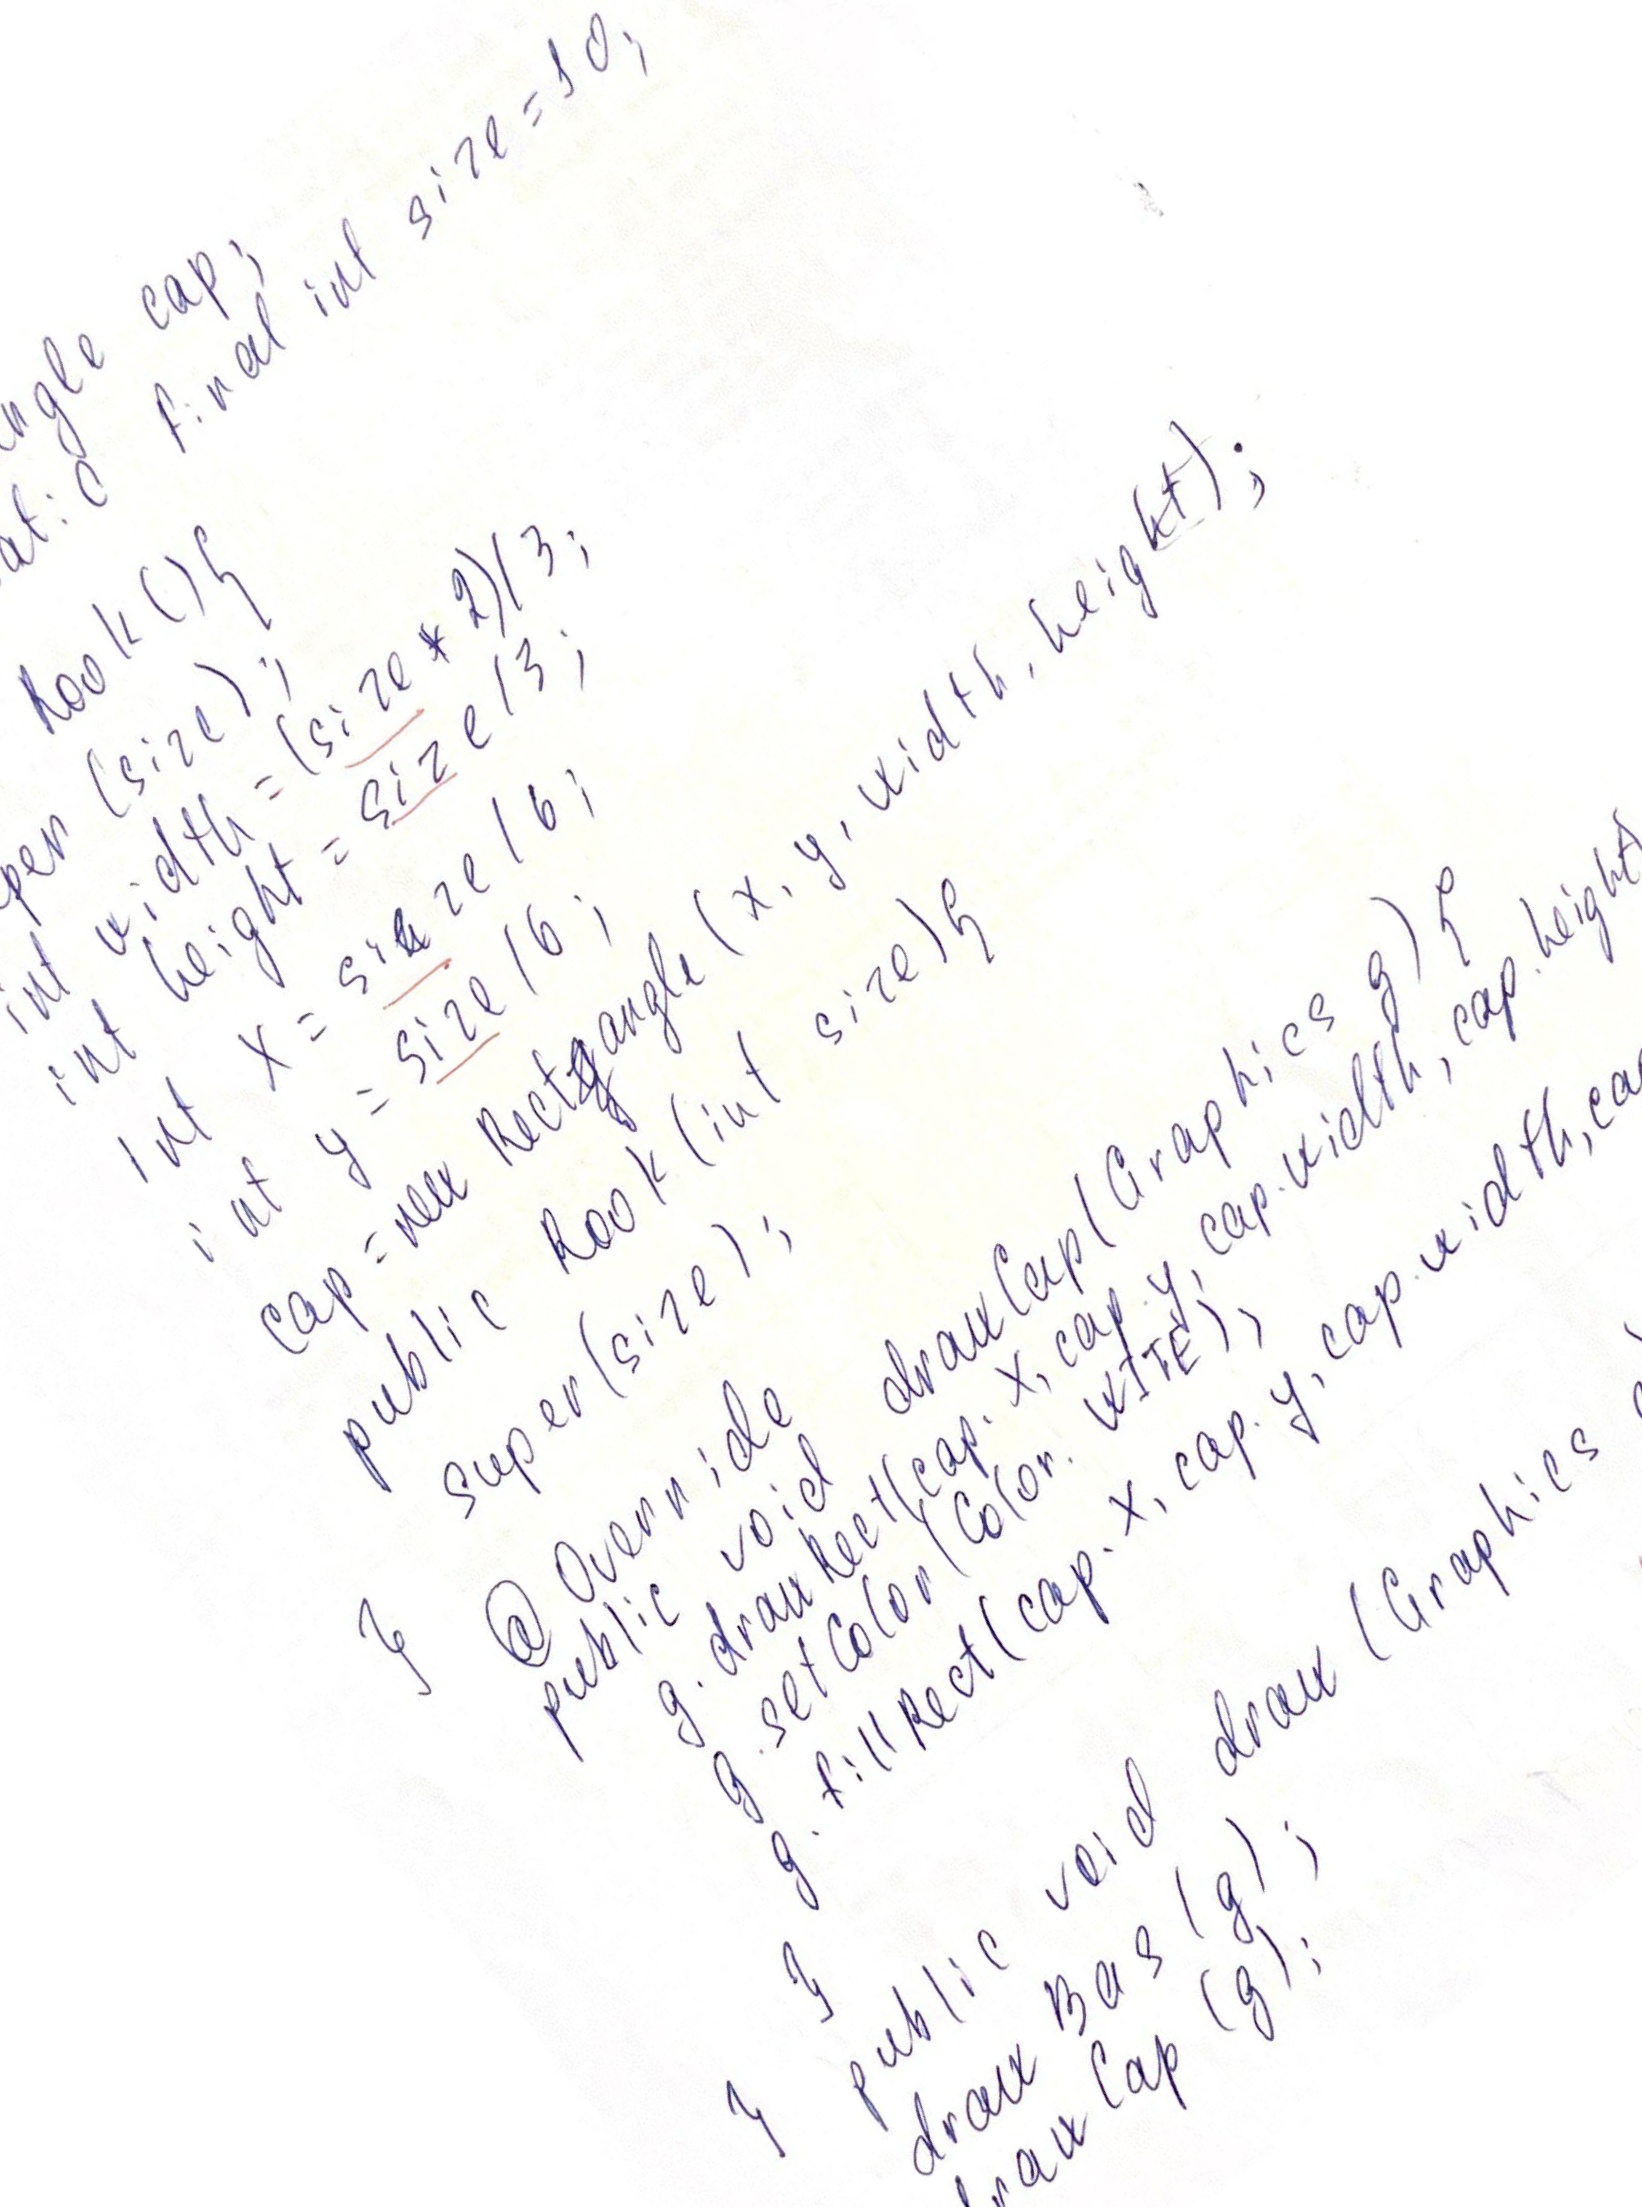 ngle cap;
atic final int size = 10;
Rook(){
per (size);
int width = (size * 2)/3;
int height = size/3;
int x = size/6;
int y = size/6;
cap = new Rectangle (x, y, width, height);
public Rook (int size){
super(size);
}
@Override
public void drawCap(Graphics g){
g.drawRect(cap.x, cap.y, cap.width, cap.height)
g.setColor(Color.WITE);
g.fillRect(cap.x, cap.y, cap.width, ca
}
public void draw (Graphics
}
draw Bas (g);
raw Cap (g);